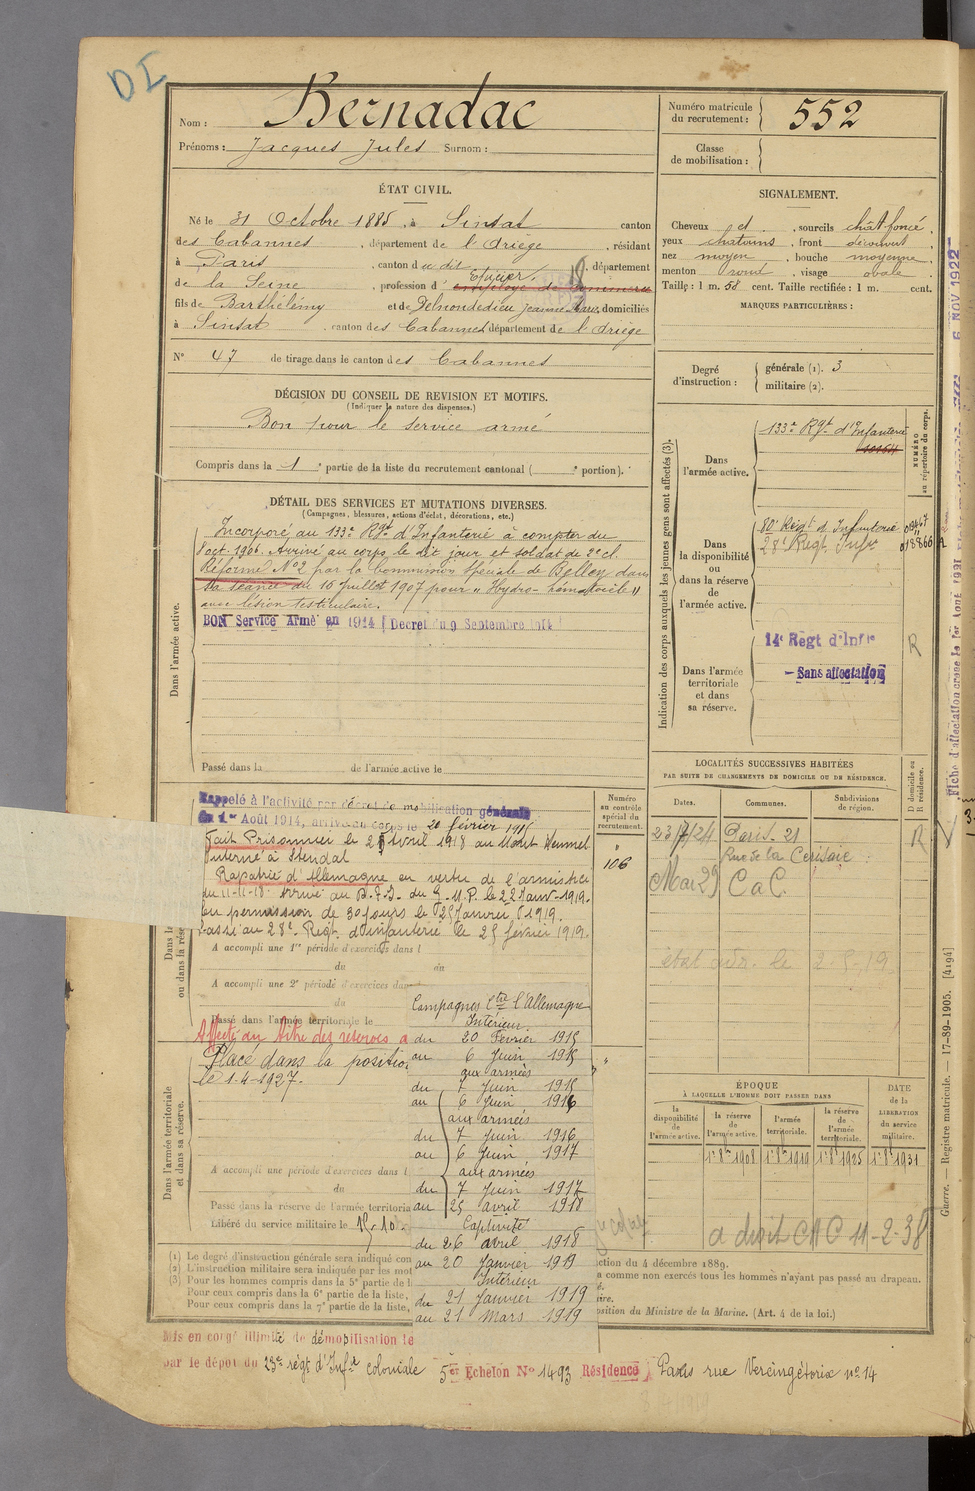 DI
Nom : Bernadac
Prénoms : Jacques Jules Surnom :
Numéro matricule du recrutement : 552
Classe de mobilisation :
ÉTAT CIVIL.
Né le 31 Octobre 1885, à Sinsat canton
des Cabannes, département de l'Ariège, résidant
à Paris, canton du dit, département
de la Seine, profession d' Epicier employé de commerce
fils de Barthélémy et de Delmondedieu Jeanne Marie, domiciliés
à Sinsat, canton des Cabannes département de l'Ariège
N° 47 de tirage dans le canton des Cabannes
SIGNALEMENT.
Cheveux et , sourcils chât foncé,
yeux chatains, front découvert,
nez moyen, bouche moyenne,
menton rond, visage ovale.
Taille : 1 m. 58 cent. Taille rectifiée : 1 m. cent.
MARQUES PARTICULIÈRES :
Degré d'instruction : générale (1). 3
militaire (2).
DÉCISION DU CONSEIL DE REVISION ET MOTIFS.
(Indiquer la nature des dispenses.)
Bon pour le service armé
Compris dans la 1e partie de la liste du recrutement cantonal ( e portion).
DÉTAIL DES SERVICES ET MUTATIONS DIVERSES.
(Campagnes, blessures, actions d'éclat, décorations, etc.)
Dans l'armée active.
Incorporé au 133e Rgt d'Infanterie à compter du
8 oct. 1906. Arrivé au corps le dit jour et soldat de 2e cl.
Réformé N°2 par la Commission Spéciale de Belley dans
sa séance du 16 Juillet 1907 pour "Hydro-hématocèle"
avec lésion testiculaire.
BON Service Armé en 1914 (Décret du 9 Septembre 1914)
Passé dans la de l'armée active le
Indication des corps auxquels les jeunes gens sont affectés (3).
NUMÉRO au répertoire du corps.
Dans l'armée active.
133e Rgt d'Infanterie
Dans la disponibilité ou dans la réserve de l'armée active.
80e Régt d'Infanterie
28e Regt Infie
Dans l'armée territoriale et dans sa réserve.
14e Regt d'Infie
R
Sans affectation
6 NOV 1922
Numéro au contrôle spécial du recrutement.
106
Rappelé à l'activité par décret de mobilisation générale
du 1er Août 1914, arrivé au corps le 20 février 1915
Fait Prisonnier le 25 Avril 1918 au Mont Kemmel
Interné à Stendal
Rapatrié d'Allemagne en vertu de l'armistice
du 11-11-18. Arrivé au le 22 Janv-1919.
En permission de 30 jours le 25 Janvier 1919.
Passé au 28e Regt. d'Infanterie le 25 février 1919.
A accompli une 1re période d'exercices dans l
du au
A accompli une 2e période d'exercices dan
du
Passé dans l'armée territoriale le
Affecté au titre des réserves a
Dans l'armée territoriale et dans sa réserve.
Placé dans la positio
le 1-4-1927.
A accompli une période d'exercices dans l
du
Passé dans la réserve de l'armée territoria
Libéré du service militaire le
Campagnes Ctre l'Allemagne
Intérieur.
du 20 Février 1915
au 6 Juin 1915
aux armées
du 7 Juin 1915
au 6 Juin 1916
aux armées
du 7 Juin 1916
au 6 Juin 1917
aux armées
du 7 Juin 1917
au 25 avril 1918
Captivité
du 26 avril 1918
au 20 Janvier 1919
Intérieur
du 21 Janvier 1919
au 21 Mars 1919
LOCALITÉS SUCCESSIVES HABITÉES
PAR SUITE DE CHANGEMENTS DE DOMICILE OU DE RÉSIDENCE.
Dates. Communes. Subdivisions de région. D domicile ou R résidence.
Paris. 21 R
Rue de la Cerisaie
Mai 29 CaC
ÉPOQUE
À LAQUELLE L'HOMME DOIT PASSER DANS
la disponibilité de l'armée active.
la réserve de l'armée active.
l'armée territoriale.
la réserve de l'armée territoriale.
DATE de la LIBÉRATION du service militaire.
1er 8bre 1908 1er 8bre 1919 1er 8bre 1925 1er 8bre 1931
a droit CAC 11-2-38
(1) Le degré d'instruction générale sera indiqué con
ction du 4 décembre 1889.
(2) L'instruction militaire sera indiquée par les mot
a comme non exercés tous les hommes n'ayant pas passé au drapeau.
(3) Pour les hommes compris dans la 5e partie de l
Pour ceux compris dans la 6e partie de la liste,
ire.
Pour ceux compris dans la 7e partie de la liste,
position du Ministre de la Marine. (Art. 4 de la loi.)
Mis en congé illimité de démobilisation le
par le dépot du 23e régt d'Infie coloniale 5e Echelon N° 1493 Résidence Paris rue Vercingétorix n° 14
Guerre. — Registre matricule. — 17-89-1905. [4194]